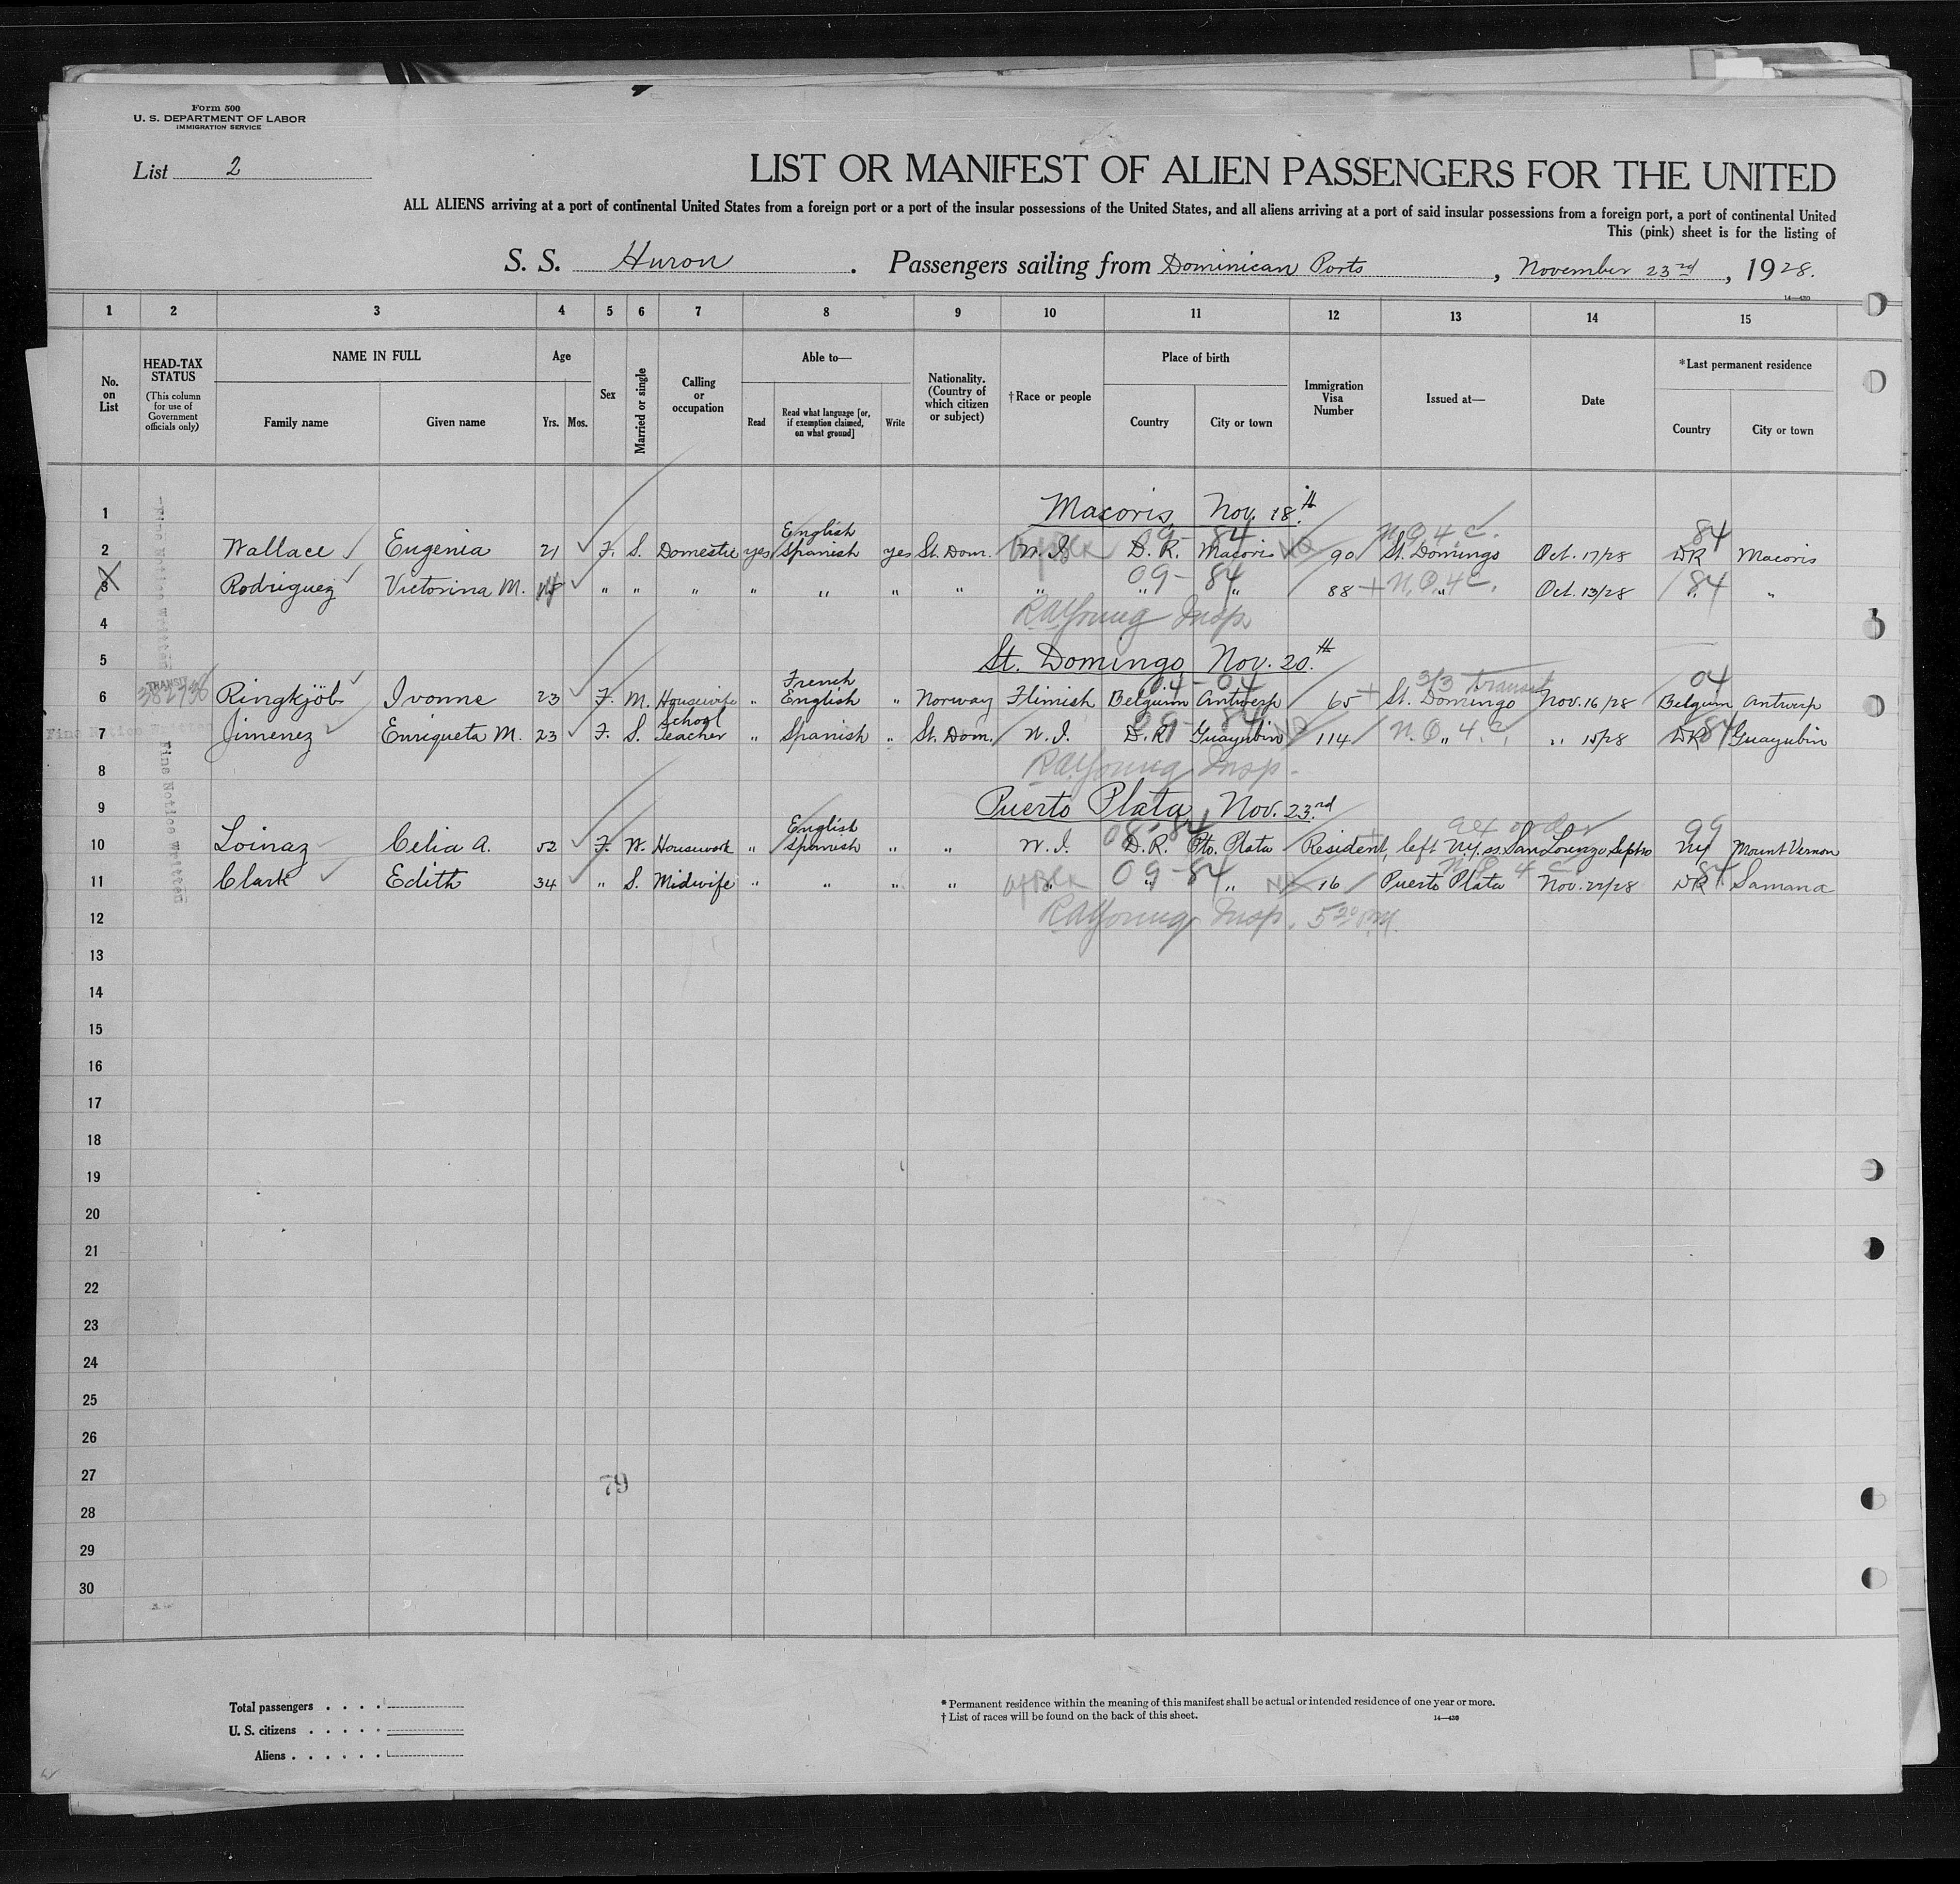 Form 500
U. S. DEPARTMENT OF LABOR
IMMIGRATION SERVICE
List 2
LIST OR MANIFEST OF ALIEN PASSENGERS FOR THE UNITED
ALL ALIENS arriving at a port of continental United States from a foreign port or a port of the insular possessions of the United States, and all aliens arriving at a port of said insular possessions from a foreign port, a port of continental United
This (pink) sheet is for the listing of
S. S. Huron . Passengers sailing from Dominican Ports , November 23rd , 1928.
14—430
1 2 3 4 5 6 7 8 9 10 11 12 13 14 15
No. on List
HEAD-TAX STATUS
(This column for use of Government officials only)
NAME IN FULL
Family name Given name
Age
Yrs. Mos.
Sex
Married or single
Calling or occupation
Able to—
Read
Read what language [or, if exemption claimed, on what ground]
Write
Nationality. (Country of which citizen or subject)
†Race or people
Place of birth
Country City or town
Immigration Visa Number
Issued at—
Date
*Last permanent residence
Country City or town
1 Macoris, Nov. 18th
09-84 N.Q.4.C. 84
2 Wallace Eugenia 21 F. S. Domestic yes English Spanish yes St. Dom. W. I. D. R. Macoris 90 St. Domingo Oct. 17/28 DR Macoris
09-84 N.Q.4C. 84
3 Rodriguez Victorina M. " " " " " " " " " " 88 " Oct. 13/28 " "
4 RAYoung Insp.
5 St. Domingo Nov. 20.th
TRANSIT 04-04 3/3 Transit 04
6 Ringkjöb Ivonne 23 F. M. Housewife " French English " Norway Flimish Belgium Antwerp 65 St. Domingo Nov. 16/28 Belgium Antwerp
Fine Notice Written
09-84 N.Q. 4.C. 84
7 Jimenez Enriqueta M. 23 F. S. School Teacher " Spanish " St. Dom. W. I. D. R. Guayubin 114 " " 15/28 DR Guayubin
8 RAYoung Insp.
9 Puerto Plata, Nov. 23.rd
99
10 Loinaz Celia A. 52 F. W. Housework " English Spanish " " W. I. D. R. Pto. Plata Resident, left NY. ss. San Lorenzo NY Mount Vernon
09-84 84
11 Clark Edith 34 " S. Midwife " " " " " " " 16 Puerto Plata Nov. 22/28 DR Samana
12 RAYoung Insp. 5 20 P.M.
Fine Notice Written
Fine Notice Written
13
14
15
16
17
18
19
20
21
22
23
24
25
26
27
79
28
29
30
Total passengers . . . .
U. S. citizens . . . . .
Aliens . . . . . .
* Permanent residence within the meaning of this manifest shall be actual or intended residence of one year or more.
† List of races will be found on the back of this sheet.
14—430